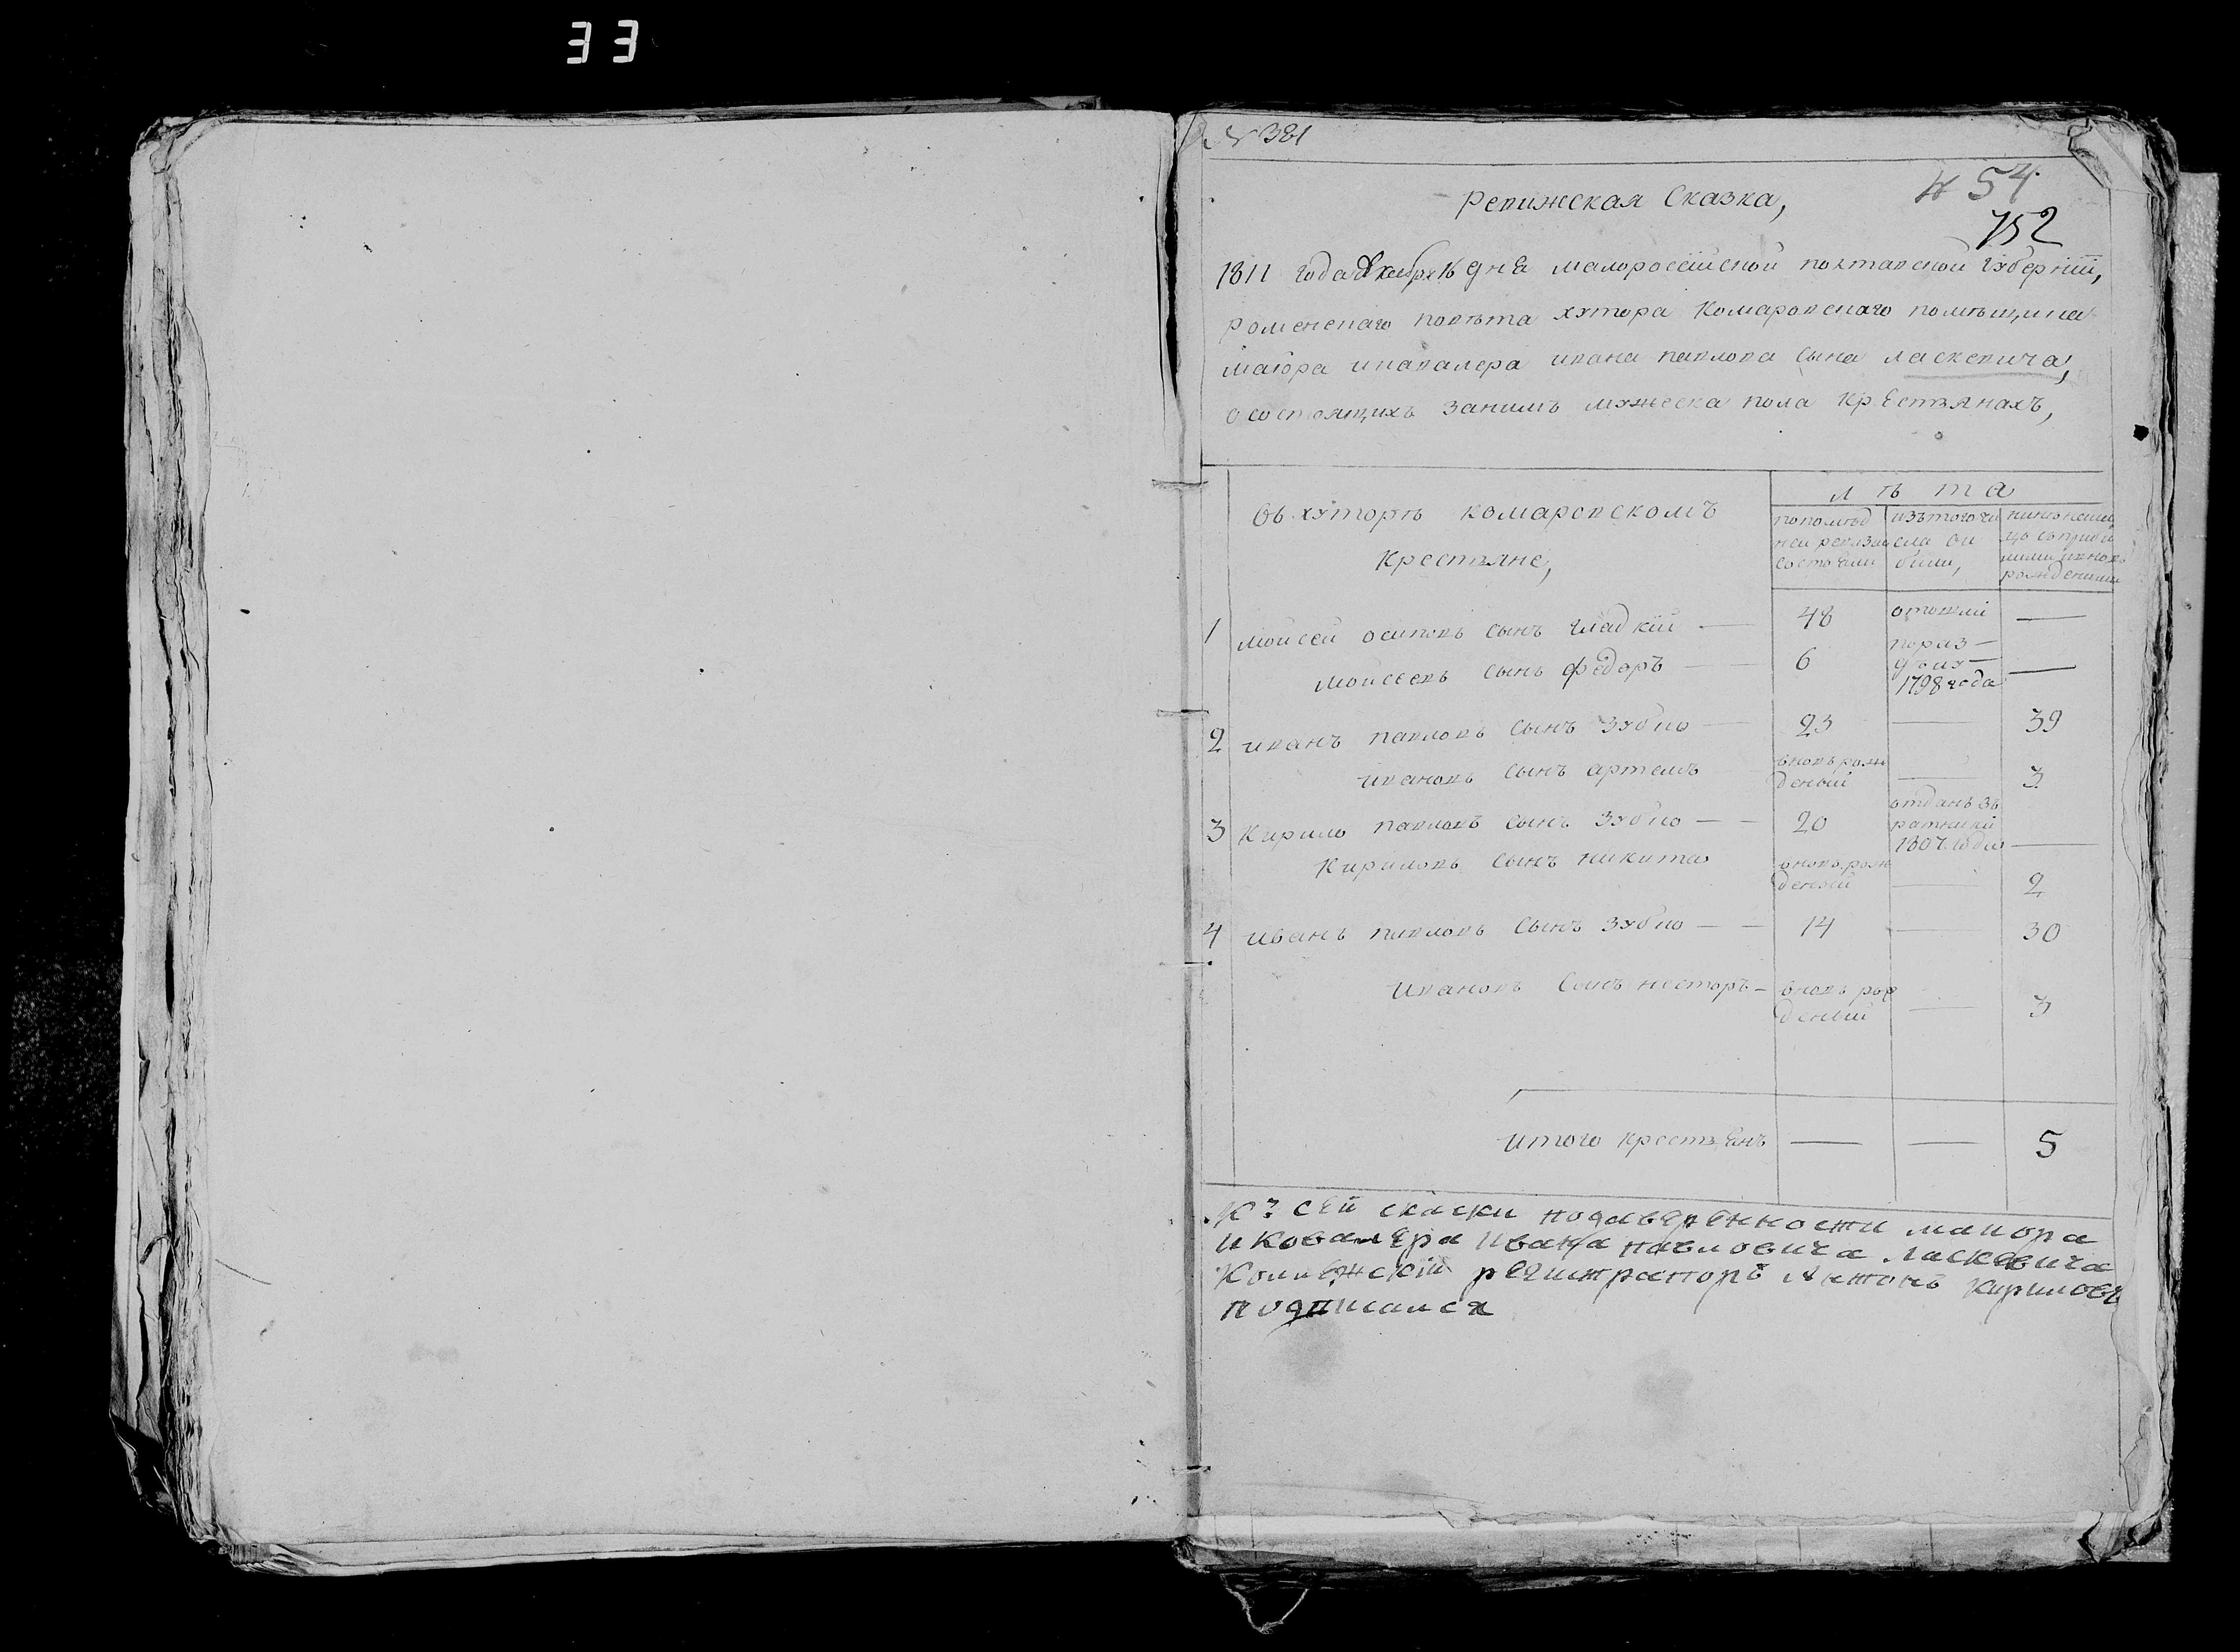 33
№ 381
№ 54
752
Ревижская Сказка,
1811 года декабря 16 дня малоросеійской полтавской губерніи,
роменскаго повѣта хутора Комаровскаго помѣщика
маіора икавалера ивана павлова сына ласкевича,
осостоящихъ занимъ мужеска пола крестьянахъ,
Овхуторѣ комаровскомъ
крестьяне,
лѣта
попослѣд
ней ревизіи
состояли
изътогочи
сла вы
были,
нинѣ налицо
рожденими
1 мойсей осиповъ сынъ гладкій — 48 —
мойсеевъ сынъ федоръ — 6 1798 года —
2 иванъ павловъ сынъ зубко — 23 — 39
ивановъ сынъ артемъ вновь рож
деный — 3
3 Кирило павловъ сынъ зубко — 20 отданъ въ
ратники
1807 года —
Кириловъ сынъ никита вновь рож
деный — 2
4 иванъ павловъ сынъ зубко — 14 — 30
ивановъ сынъ несторъ — вновь рож
деный — 3
итого крестьянъ — — 5
Къ сей скаски подоверенности маиора
икавалера ивана павловича ласкевича
Колежскій регистраторъ Антонъ Кириловъ
подписался